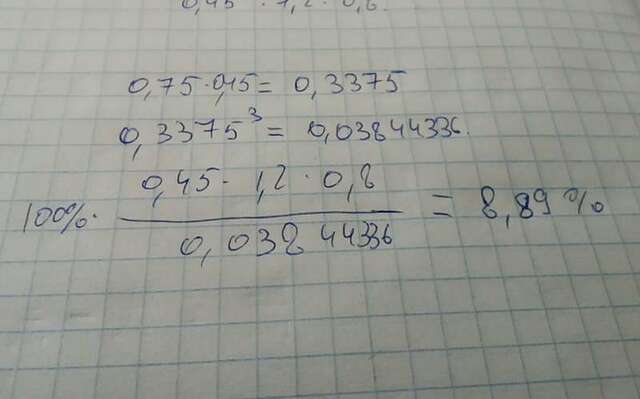 0,45 · 1,2 · 0,8
0,75·0,45 = 0,3375
0,3375³ = 0,03844336.
100%· 0,45 · 1,2 · 0,8 / 0,03844336 = 8,89%